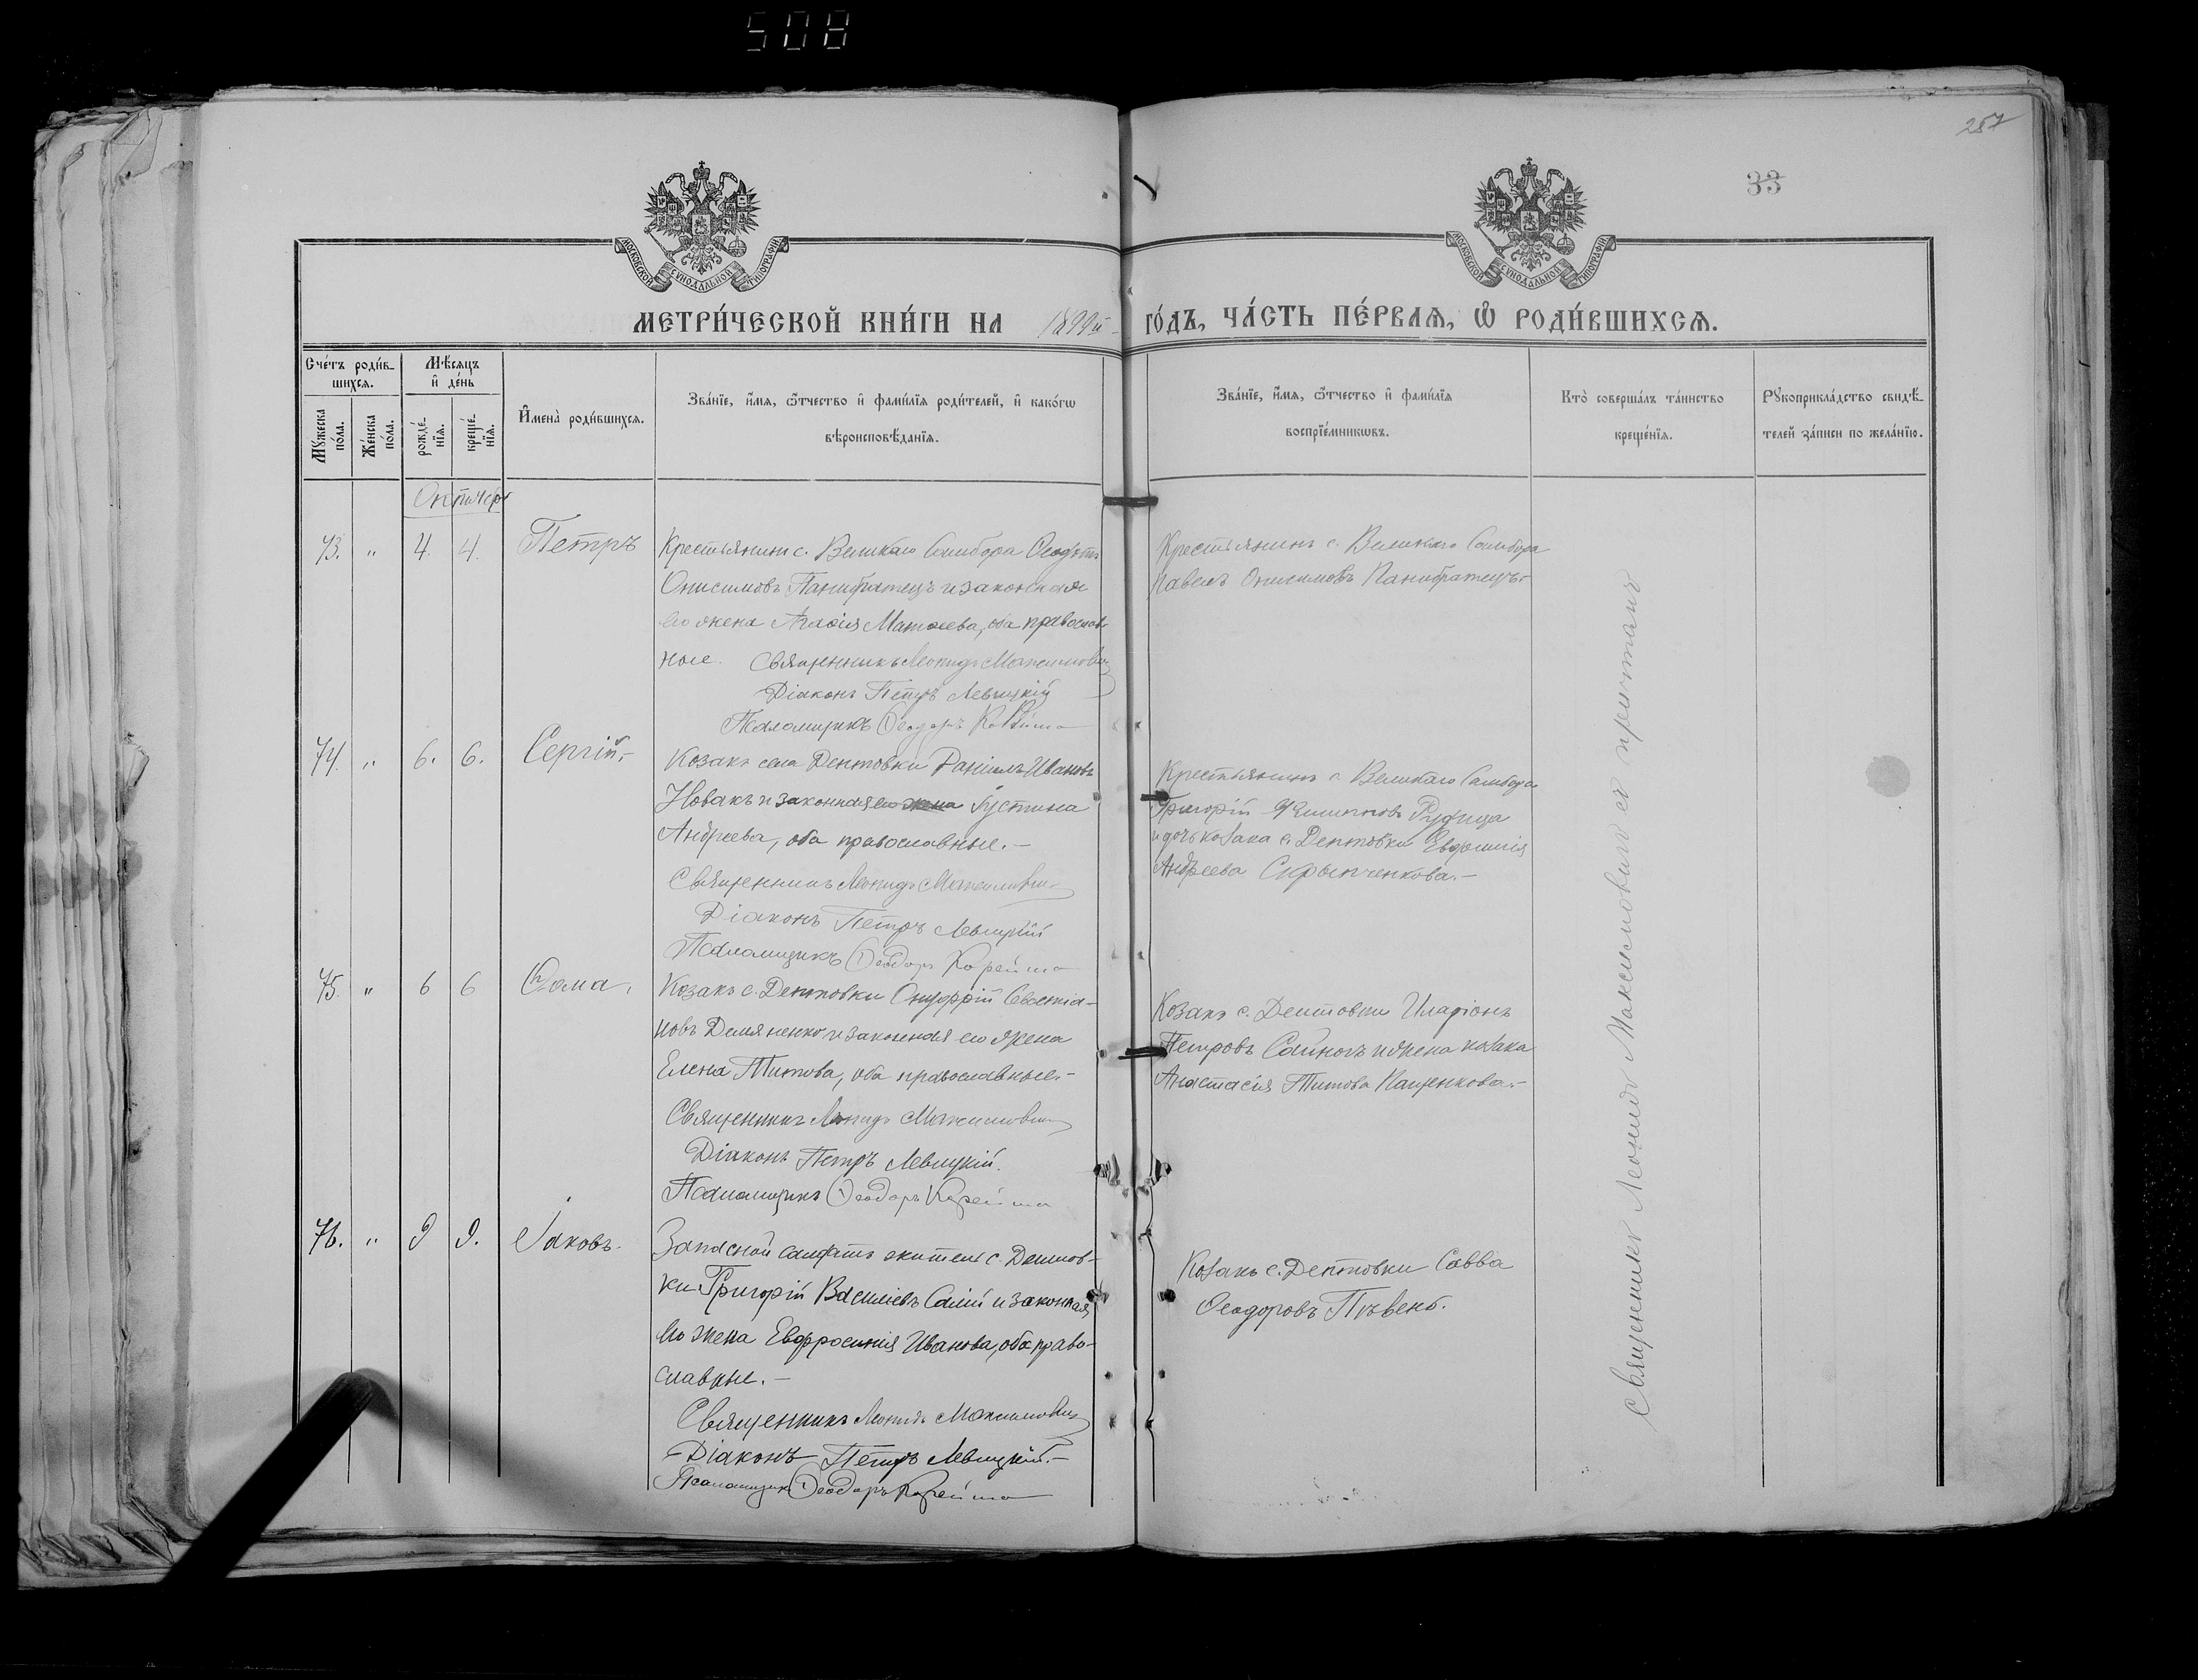 508
257
33
МОСКОВСКОЙ СѴНОДАЛЬНОЙ ТИПОГРАФІИ
МОСКОВСКОЙ СѴНОДАЛЬНОЙ ТИПОГРАФІИ
МЕТРИ́ЧЕСКОЙ КНИ́ГИ НА 1899й ГО́ДЪ, ЧА́СТЬ ПЕ́РВАЯ, Ѡ҆ РОДИ́ВШИХСЯ.
Сче́тъ роди́в-
шихся.
Мѣ́сяцъ
и҆ де́нь
Мꙋ́жеска
по́ла.
Же́нска
по́ла.
рожде́-
нїя.
креще́-
нїя.
И҆мена̀ роди́вшихся.
Зва́нїе, и҆́мя, ѻ҆́тчество и҆ фамі́лїя роди́телей, и҆ како́гѡ
вѣроисповѣ́данїя.
Зва́нїе, и҆́мя, ѻ҆́тчество и҆ фами́лїя
воспрїе́мникѡвъ.
Кто̀ соверша́лъ та́инство
креще́нїя.
Рꙋкоприкла́дство свидѣ́-
телей за́писи по жела́нїю.
Октябрь
73. " 4. 4. Петръ
Крестьянинъ с. Великаго Самбора Ѳеодотъ
Онисимовъ Панибратецъ и законная
его жена Агаѳія Матѳеева, оба православ-
ные. Священникъ Леонидъ Максимович
Діаконъ Петръ Левицкій
Псаломщикъ Ѳеодоръ Корейша
Крестьянинъ с. Великаго Самбора
Павелъ Онисимовъ Панибратецъ.-
74. " 6. 6. Сергій.-
Козакъ села Дептовки Даніилъ Ивановъ
Новакъ и законная его жена Іустина
Андреева, оба православные.-
Священникъ Леонидъ Максимович
Діаконъ Петръ Левицкій
Псаломщикъ Ѳеодоръ Корейша
Крестьянинъ с. Великаго Самбора
Григорій Филипповъ
и дочь козака с. Дептовки
Андреева Скрыпченкова.-
75. " 6 6 Ѳома.
Козакъ с. Дептовки Онуфрій Севастіа-
новъ Демяненко и законная его жена
Елена Титова, оба православные.-
Священникъ Леонидъ Максимович
Діаконъ Петръ Левицкій.
Псаломщикъ Ѳеодоръ Корейша
Козакъ с. Дептовки Иларіонъ
Петровъ и жена козака
Анастасія Титова Пащенкова.-
76. " 9 9. Іаковъ.
Запасной солдатъ житель с. Дептов-
ки Григорій Василіевъ Салій и законная
его жена Евфросинія Иванова, оба право-
славные.-
Священникъ Леонидъ Максимович
Діаконъ Петръ Левицкій.-
Псаломщикъ Ѳеодоръ Корейша
Козакъ с. Дептовки Савва
Ѳеодоровъ
Священникъ Леонидъ Максимовичъ съ причтомъ